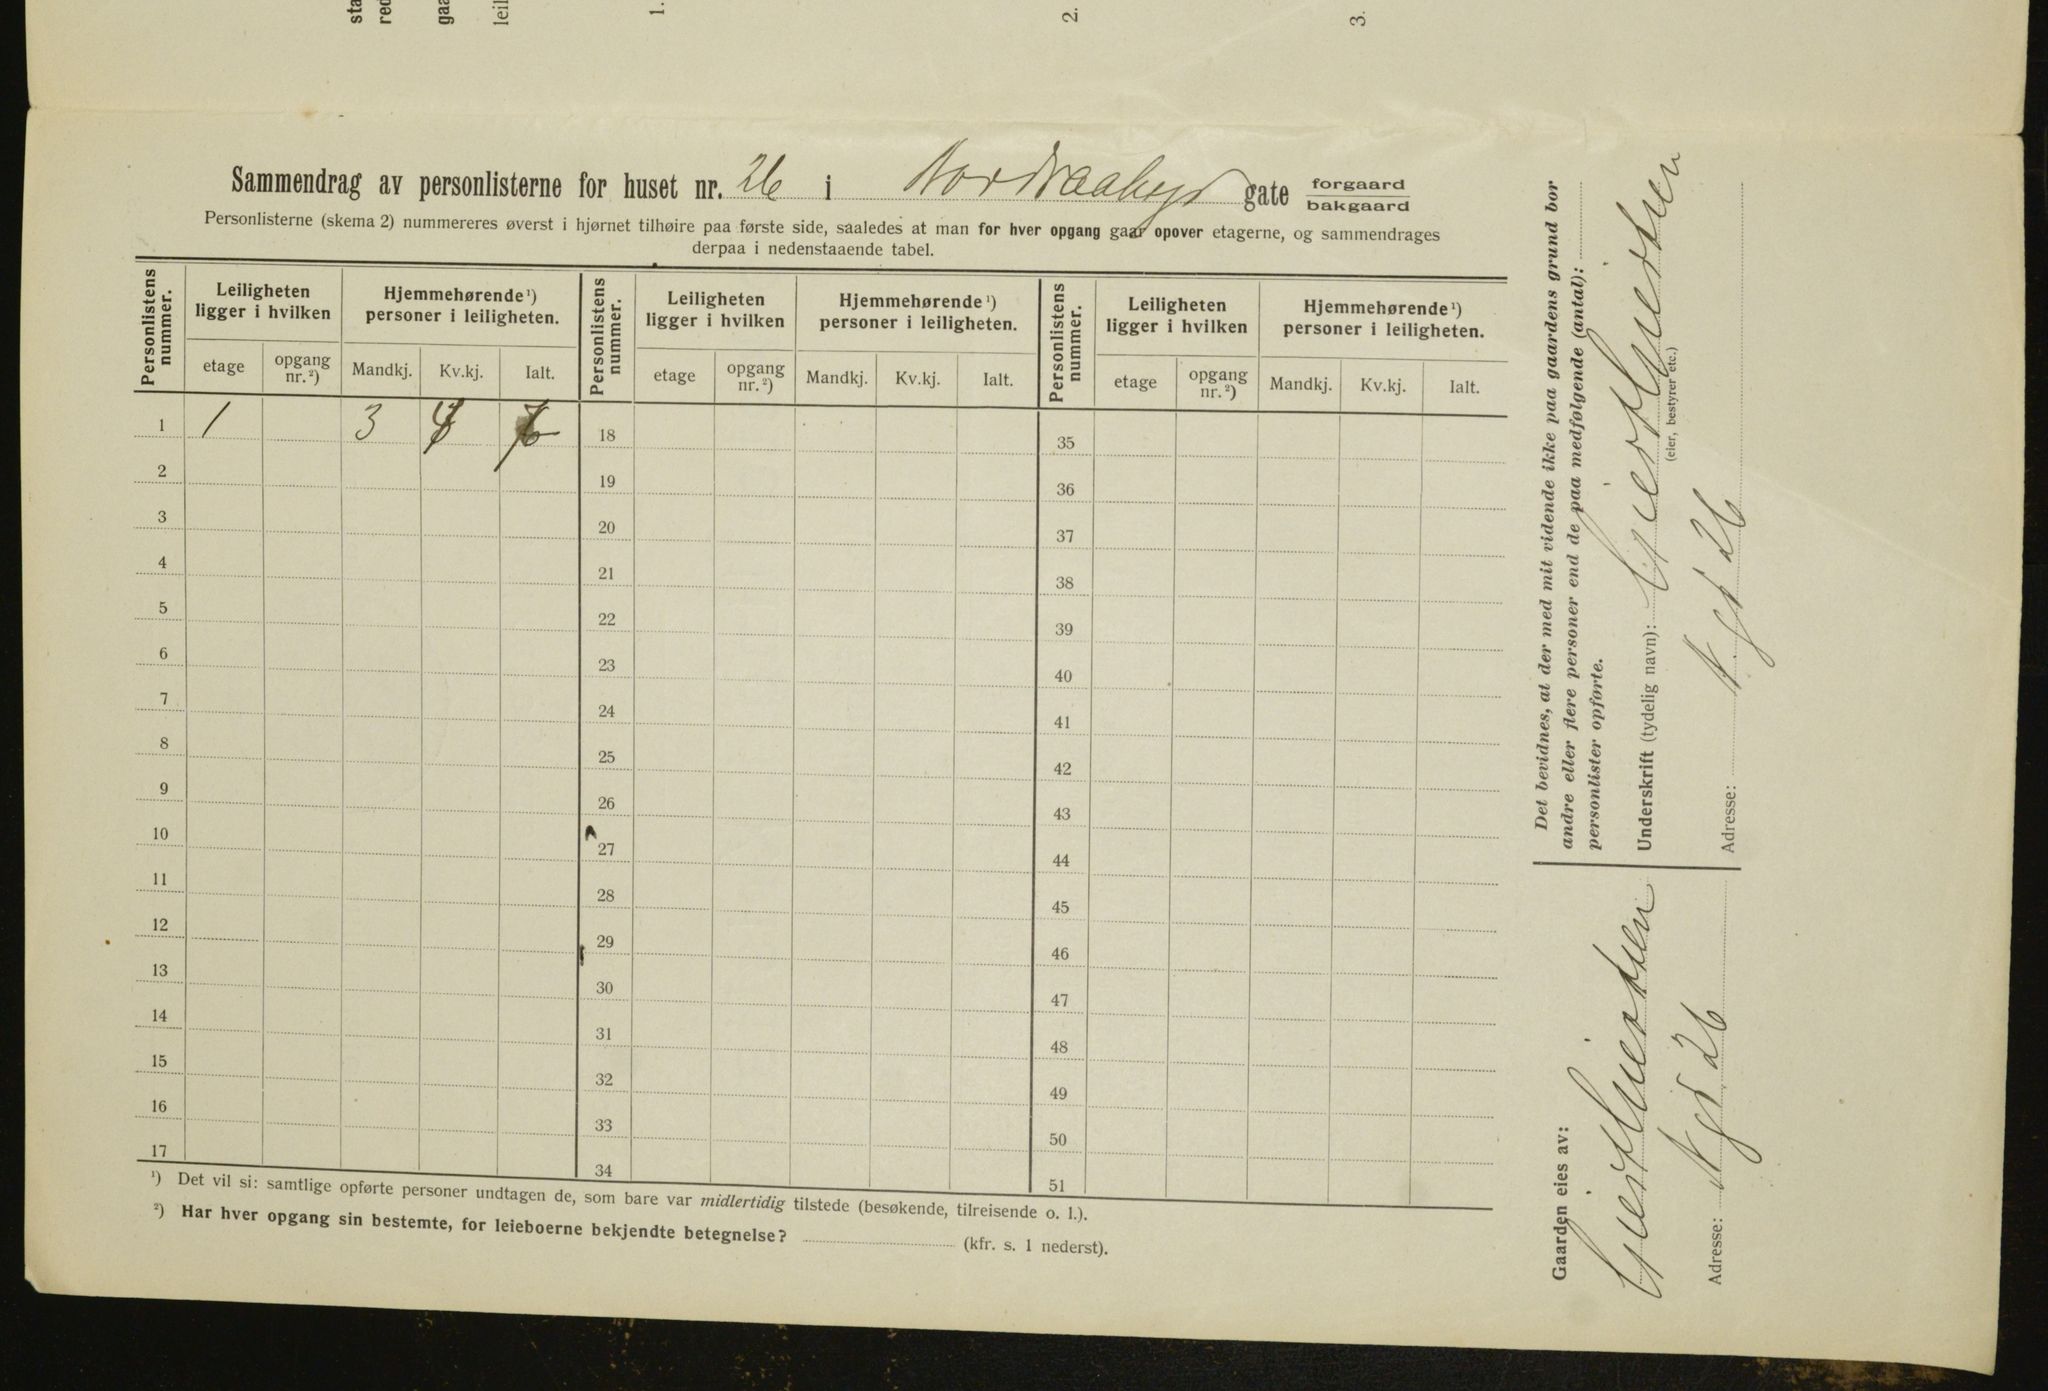 sta
red
gaa
leil
1.
2.
3.
Sammendrag av personlisterne for huset nr. 26 i Nordraaks gate forgaard bakgaard
Personlisterne (skema 2) nummereres øverst i hjørnet tilhøire paa første side, saaledes at man for hver opgang gaar opover etagerne, og sammendrages
derpaa i nedenstaaende tabel.
Personlistens nummer. Leiligheten ligger i hvilken Hjemmehørende ¹) personer i leiligheten. Personlistens nummer. Leiligheten ligger i hvilken Hjemmehørende ¹) personer i leiligheten. Personlistens nummer. Leiligheten ligger i hvilken Hjemmehørende ¹) personer i leiligheten.
etage opgang nr. ²) Mandkj. Kv.kj. Ialt. etage opgang nr. ²) Mandkj. Kv.kj. Ialt. etage opgang nr. ²) Mandkj. Kv.kj. Ialt.
1 1 3 18 35
2 19 36
3 20 37
4 21 38
5 22 39
6 23 40
7 24 41
8 25 42
9 26 43
10 27 44
11 28 45
12 29 46
13 30 47
14 31 48
15 32 49
16 33 50
17 34 51
¹) Det vil si: samtlige opførte personer undtagen de, som bare var midlertidig tilstede (besøkende, tilreisende o. l.).
²) Har hver opgang sin bestemte, for leieboerne bekjendte betegnelse? (kfr. s. 1 nederst).
Det bevidnes, at der med mit vidende ikke paa gaardens grund bor
andre eller flere personer end de paa medfølgende (antal):
personlister opførte.
Underskrift (tydelig navn):
(eier, bestyrer etc.)
Adresse: N gt 26
Gaarden eies av:
Adresse: N gt 26